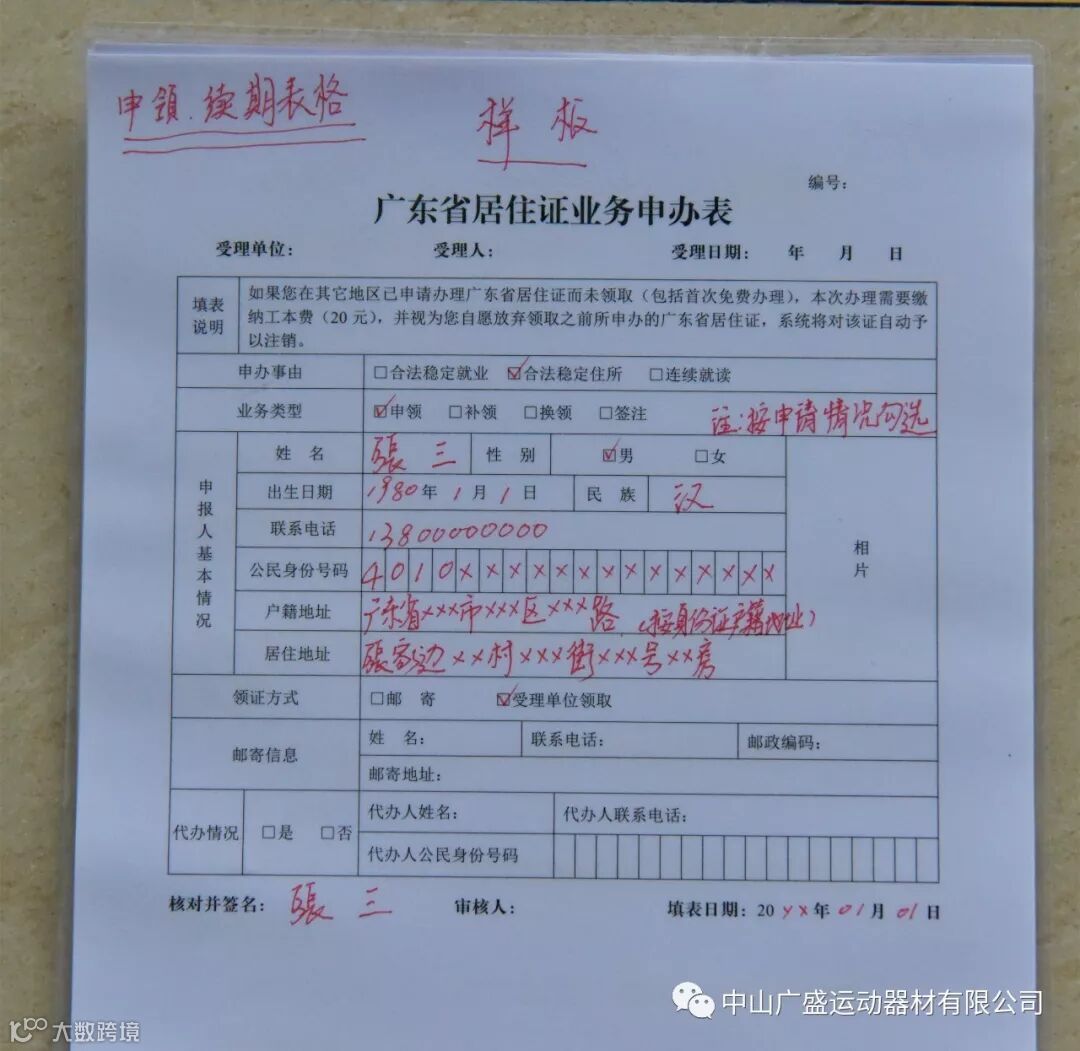 申領.续期表格
样板
编号：
广东省居住证业务申办表
受理单位： 受理人： 受理日期： 年 月 日
填表说明 如果您在其它地区已申请办理广东省居住证而未领取（包括首次免费办理），本次办理需要缴
纳工本费（20 元），并视为您自愿放弃领取之前所申办的广东省居住证，系统将对该证自动予
以注销。
申办事由 □合法稳定就业 ☑合法稳定住所 □连续就读
业务类型 ☑申领 □补领 □换领 □签注 注:按申请情况勾选
申报人基本情况
姓 名 張 三 性 别 ☑男 □女
出生日期 1980年 1 月 1 日 民 族 汉
联系电话 13800000000
相片
公民身份号码 4010××××××××××××××
户籍地址 广东省×××市×××区×××路（按身份证户籍地址）
居住地址 張家边××村×××街×××号××房
领证方式 □邮 寄 ☑受理单位领取
邮寄信息 姓 名： 联系电话： 邮政编码：
邮寄地址：
代办情况 □是 □否 代办人姓名： 代办人联系电话：
代办人公民身份号码
核对并签名： 張 三 审核人： 填表日期：20××年 01月 01日
中山广盛运动器材有限公司
大数跨境